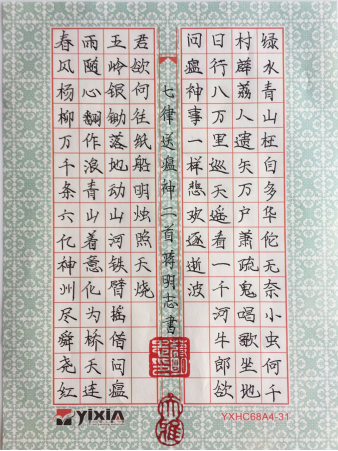 绿水青山枉自多华佗无奈小虫何千
村薜荔人遗矢万户萧疏鬼唱歌坐地
日行八万里巡天遥看一千河牛郎欲
问瘟神事一样悲欢逐逝波
七律送瘟神二首蒋明志书
春风杨柳万千条六亿神州尽舜尧红
雨随心翻作浪青山着意化为桥天连
五岭银锄落地动山河铁臂摇借问瘟
君欲何往纸船明烛照天烧
YXHC68A4-31